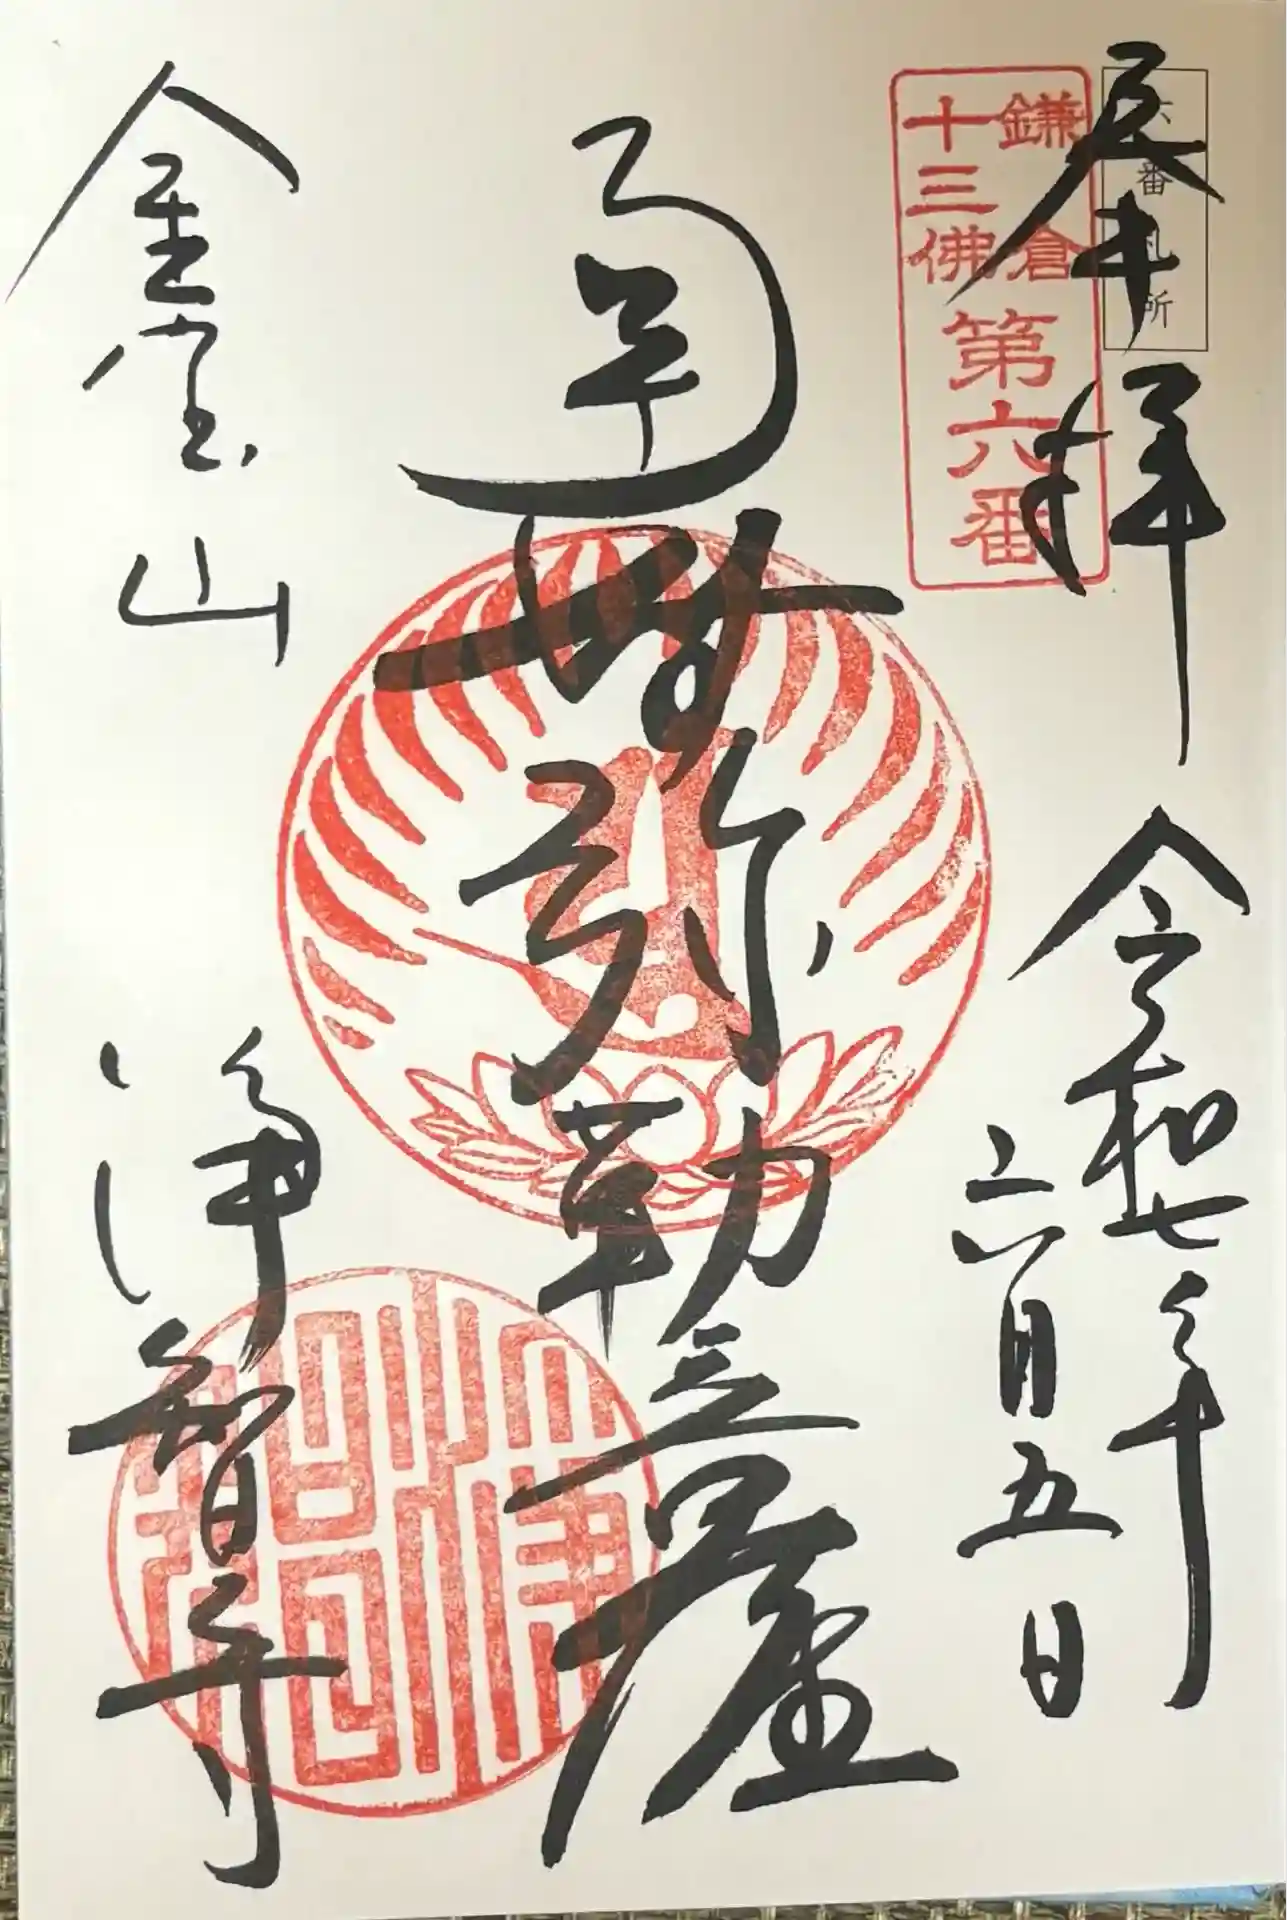 六番札所
奉拝
令和七年
六月五日
鎌倉
十三佛
第六番
南無弥勒立尊
金宝山
浄智寺